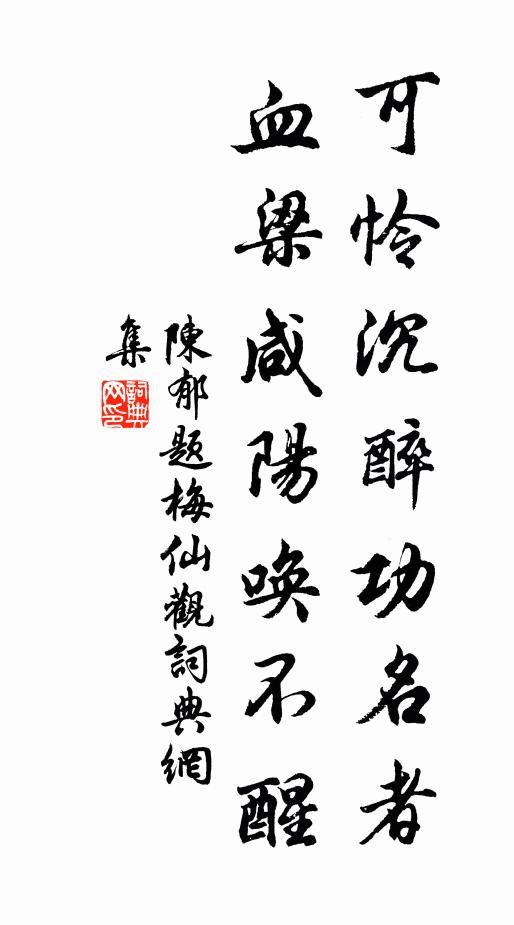 可憐沉醉功名者
血梁咸陽喚不醒
陳郁題梅仙觀詞典網
集
詞典
网印